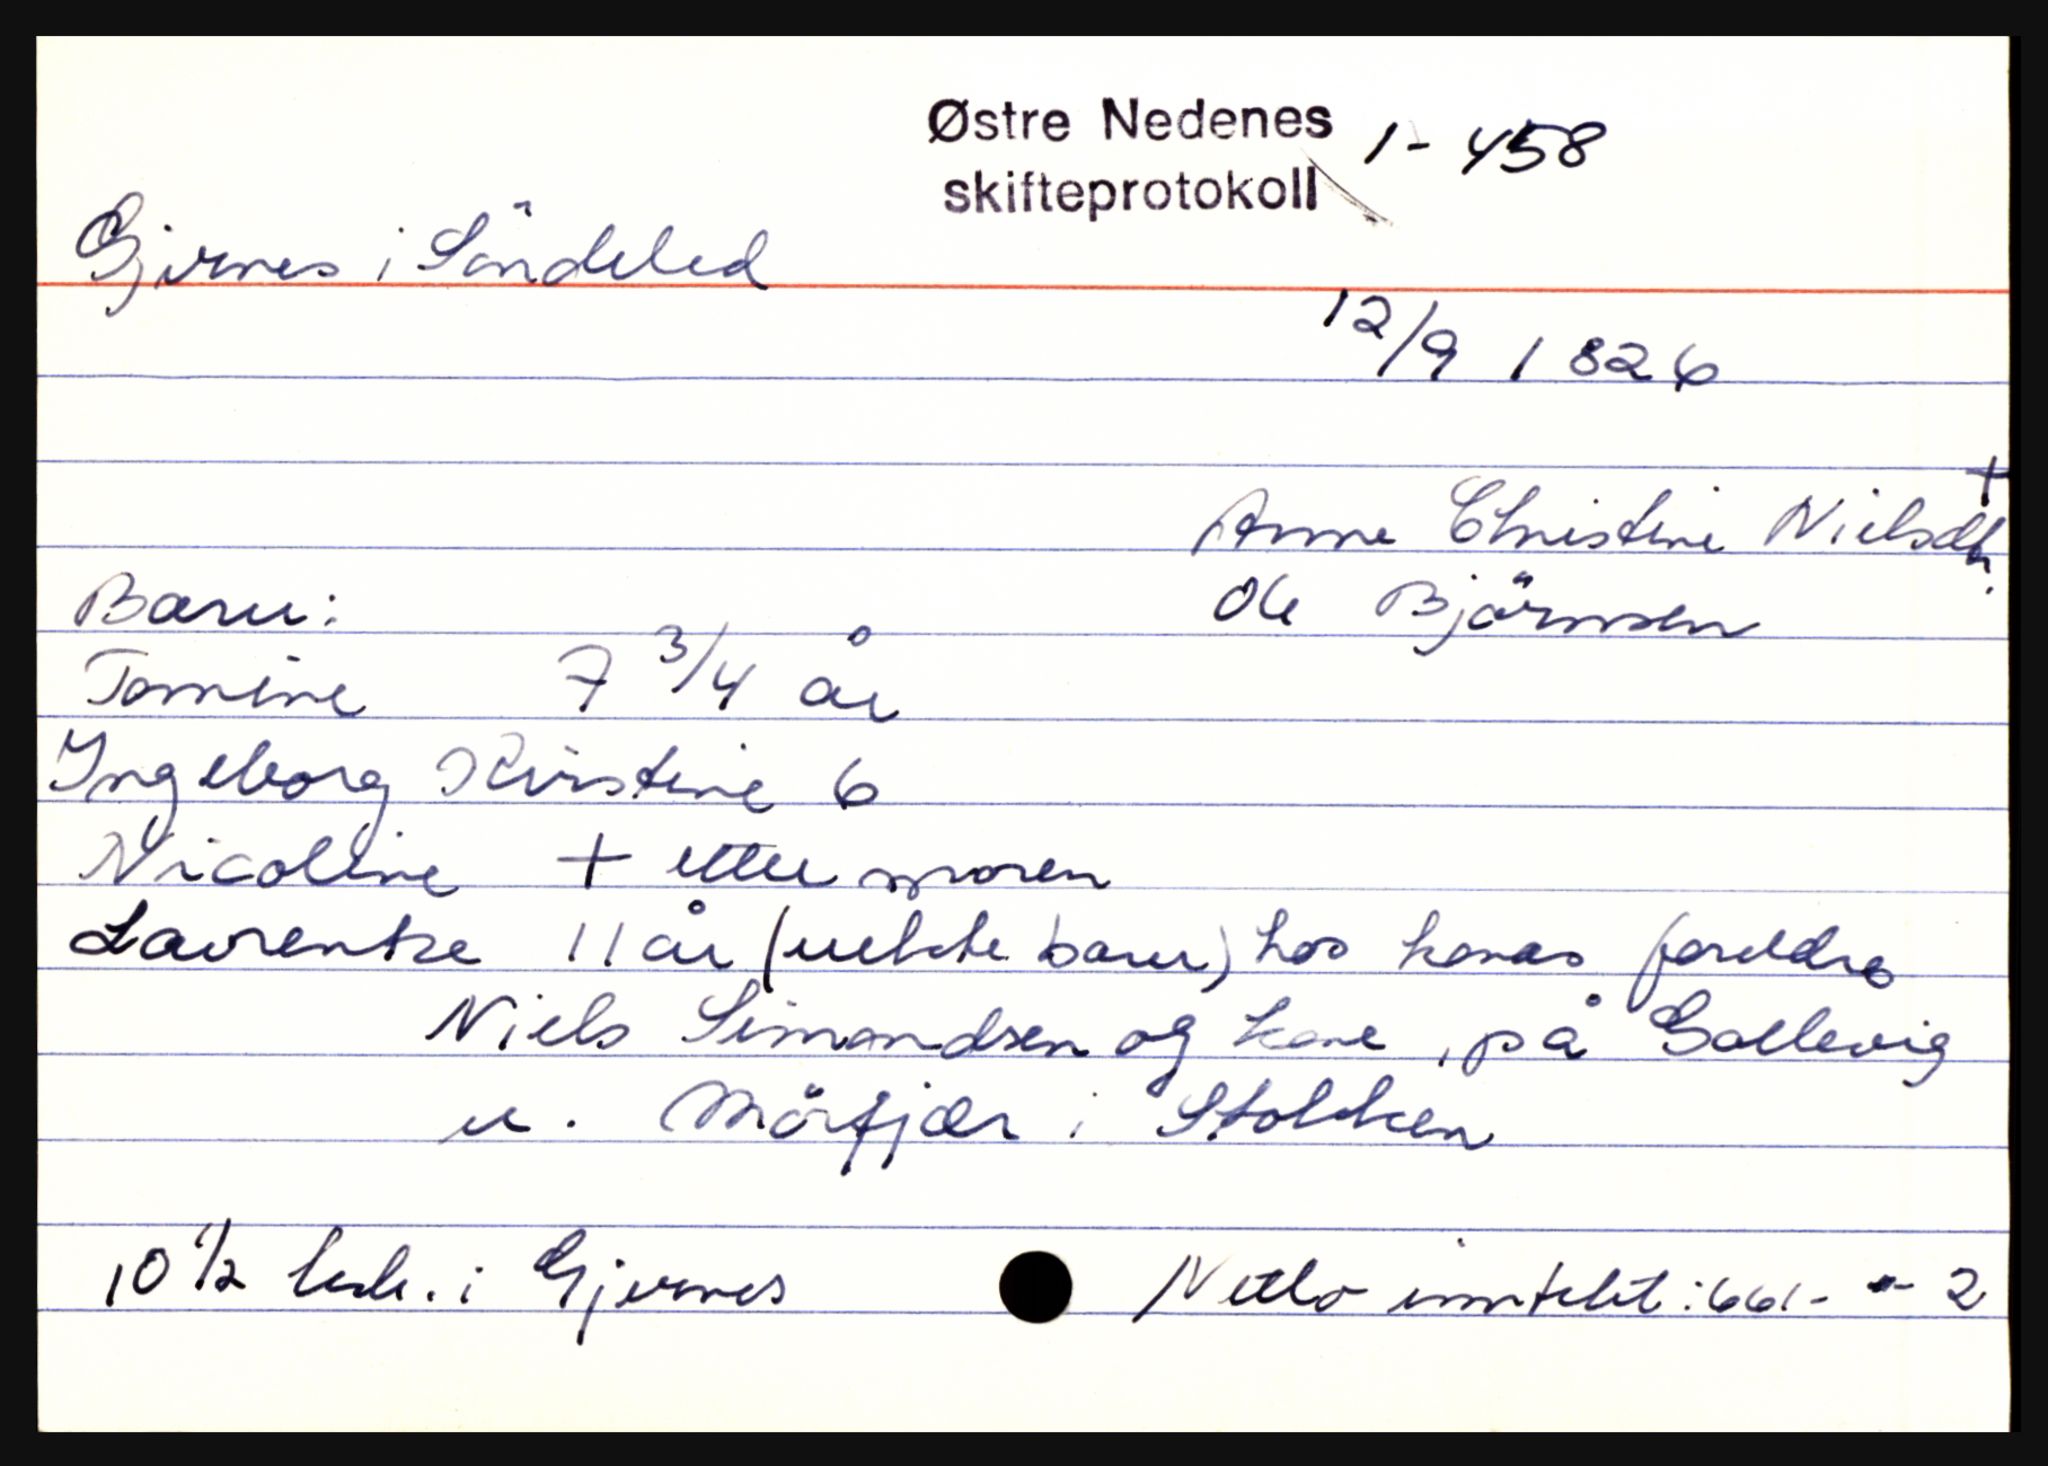 Østre Nedenes 1-458
skifteprotokoll
Gjernes i Söndeled
12/9 1826
+
Anne Christine Nielsdtr.
Barn: Ole Björnsen
Tomine 7 3/4 år
Ingeborg Kirstine 6
Nicoline + etter moren
Laurentze 11 år (uekte barn) hos konas foreldre
Niels Simondsen og kone, på Gollevig
u. Mörfjær i Stokken
10 1/2 lisb. i Gjernes Netto inntekt: 661- - 2